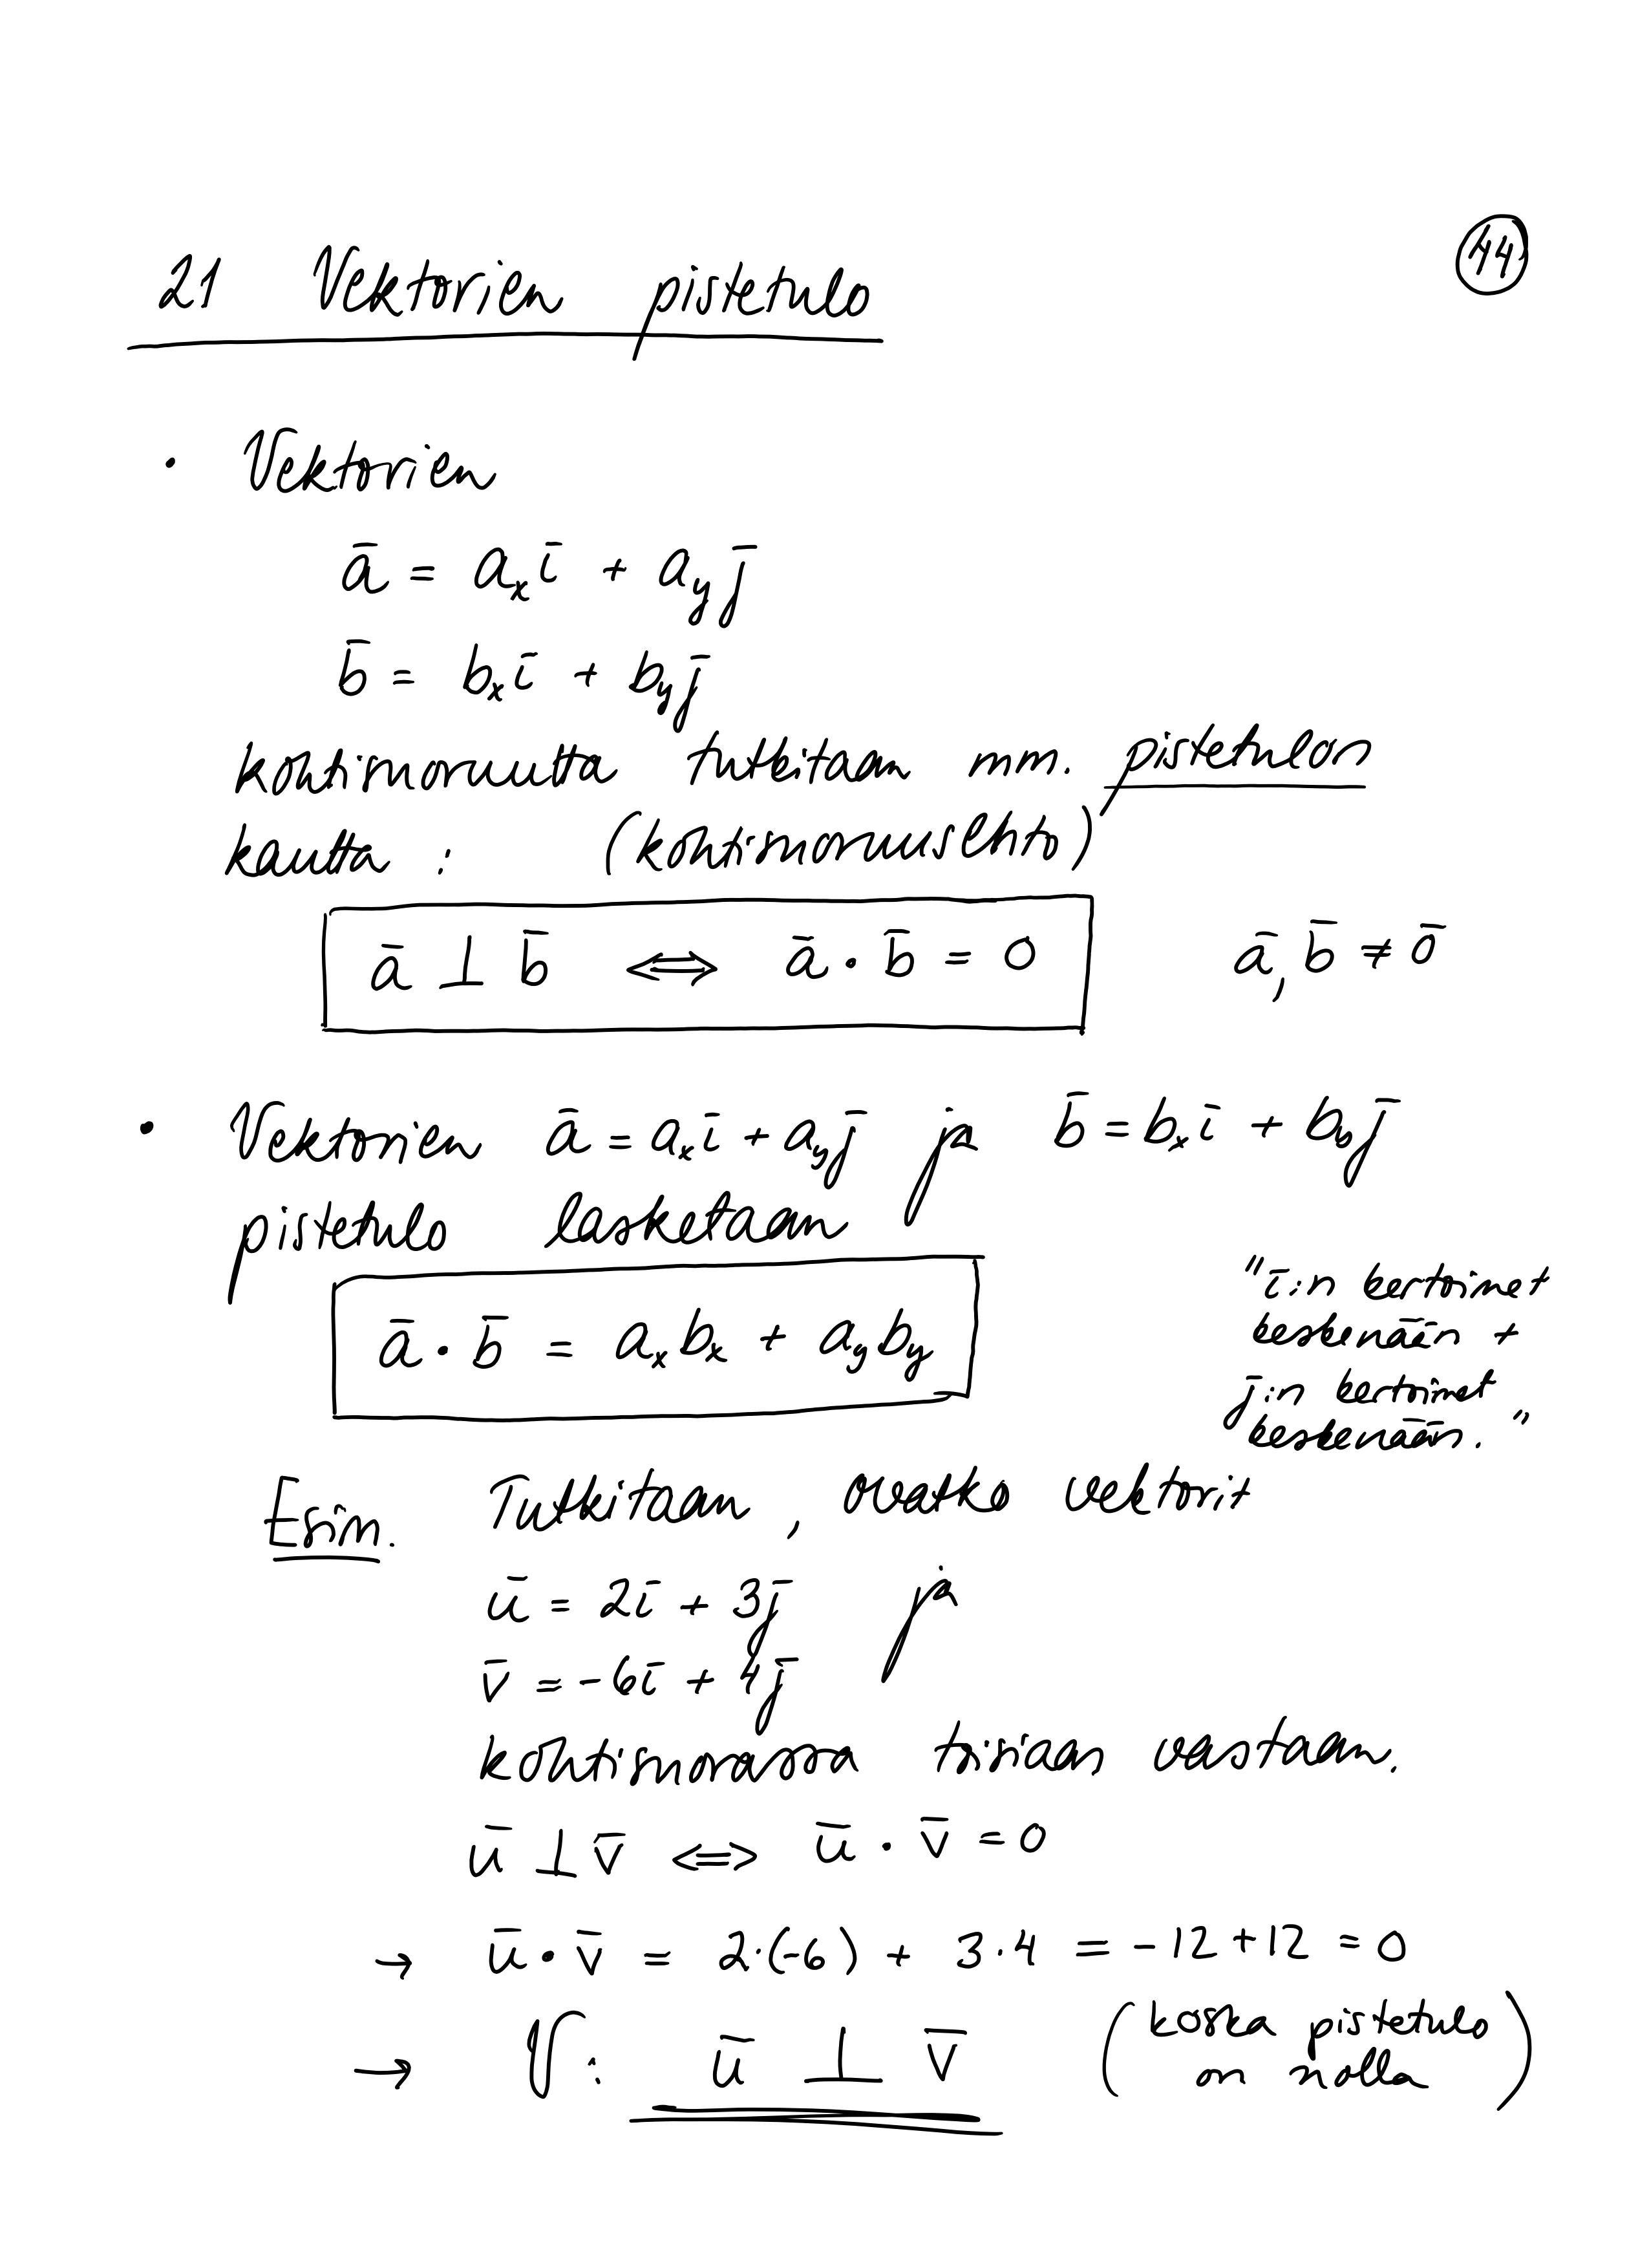 44
21 Vektorien pistetulo
• Vektorien
ā = aₓī + a_y j̄
b̄ = bₓī + b_y j̄
kohtisuoruutta tutkitaan mm. pistetulon
kautta : (kohtisuoruusehto)
ā ⊥ b̄ ⟺ ā · b̄ = 0 ā, b̄ ≠ ō
• Vektorien ā = aₓī + a_y j̄ ja b̄ = bₓī + b_y j̄
pistetulo lasketaan
ā · b̄ = aₓbₓ + a_y b_y
"ī:n kertoimet
keskenään +
j̄:n kertoimet
keskenään."
Esim. Tutkitaan, ovatko vektorit
ū = 2ī + 3j̄ ja
v̄ = -6ī + 4j̄
kohtisuorassa toisiaan vastaan.
ū ⊥ v̄ ⟺ ū · v̄ = 0
→ ū · v̄ = 2·(-6) + 3·4 = -12 + 12 = 0
→ V: ū ⊥ v̄ (koska pistetulo
on nolla)